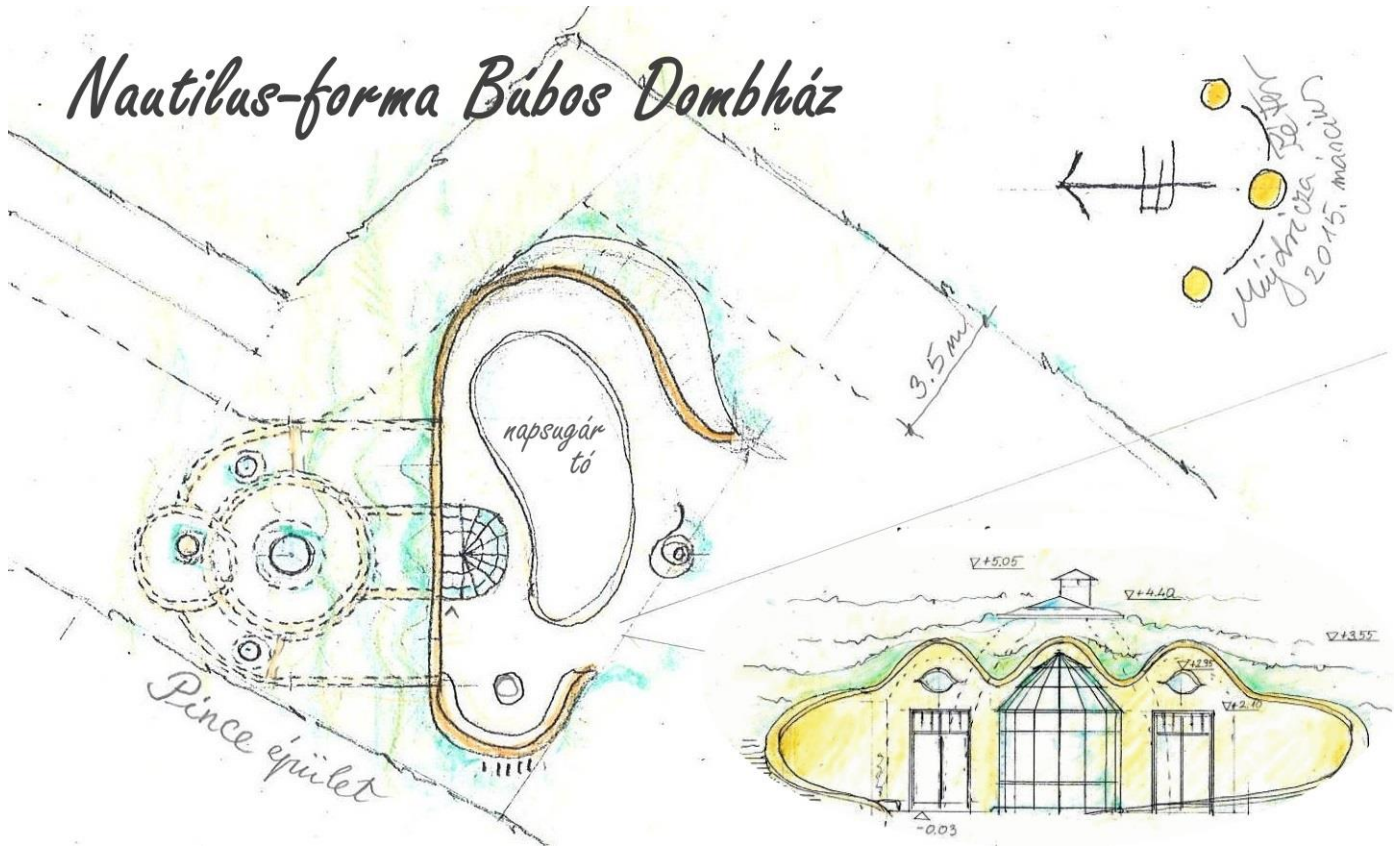 Nautilus-forma Búbos Dombház
Péter
2015. március
3.5 m.
napsugár
tó
Pince épület
+5.05
+4.40
+3.55
+2.95
+2.10
-0.03